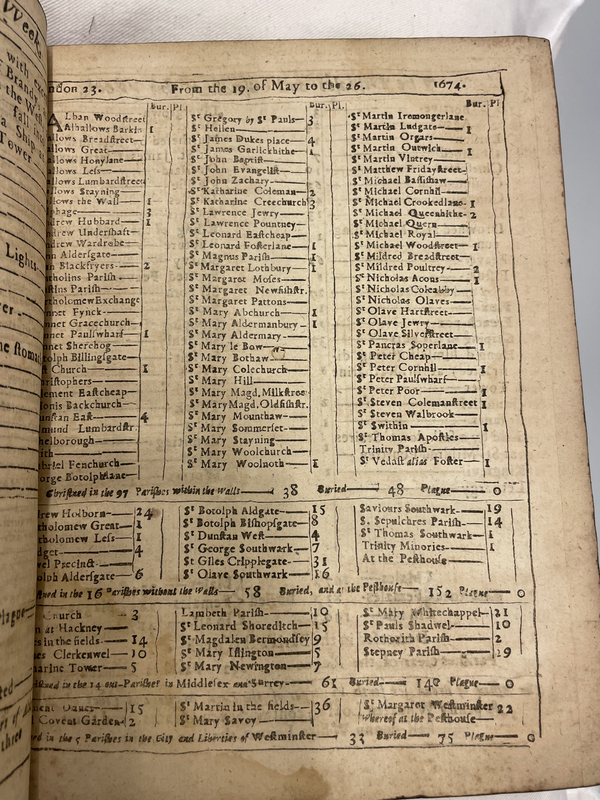 Weeks
ndon 23. From the 19. of May to the 26. 1674.
Bur. Pl.
Lban Woodſtreet
Alhallows Barkin 1
llows Breadſtreet
llows Great
llows Honylane
llows Leſs
llows Lumbardſtreet
llows Stayning
llows the Wall 1
phage 3
drew Hubbard 1
drew Underſhaft
drew Wardrobe
n Alderſgate
n Blackfryers 2
tholins Pariſh
ſtins Pariſh
tholomew Exchange
nnet Fynck
nnet Gracechurch
nnet Paulſwharf 1
nnet Sherehog
tolph Billingſgate
t Church 1
riſtophers
lement Eaſtcheap
ionis Backchurch
unſtan Eaſt 4
mund Lumbardſtr.
helborough
ith
briel Fenchurch
orge Botolphlane
Bur. Pl.
Sᵗ Gregory by Sᵗ Pauls 3
Sᵗ Hellen
Sᵗ James Dukes place 4
Sᵗ James Garlickhithe 1
Sᵗ John Baptiſt
Sᵗ John Evangeliſt
Sᵗ John Zachary
Sᵗ Katharine Coleman 2
Sᵗ Katharine Creechurch 3
Sᵗ Lawrence Jewry
Sᵗ Lawrence Pountney
Sᵗ Leonard Eaſtcheap
Sᵗ Leonard Foſterlane 1
Sᵗ Magnus Pariſh 1
Sᵗ Margaret Lothbury 1
Sᵗ Margaret Moſes
Sᵗ Margaret Newfiſhſtr.
Sᵗ Margaret Pattons
Sᵗ Mary Abchurch 1
Sᵗ Mary Aldermanbury 1
Sᵗ Mary Aldermary
Sᵗ Mary le Bow
Sᵗ Mary Bothaw
Sᵗ Mary Colechurch
Sᵗ Mary Hill
Sᵗ Mary Magd. Milkſtree
Sᵗ Mary Magd. Oldfiſhſtr.
Sᵗ Mary Mounthaw
Sᵗ Mary Sommerſet
Sᵗ Mary Stayning
Sᵗ Mary Woolchurch
Sᵗ Mary Woolnoth 1
Bur. Pl
Sᵗ Martin Iremongerlane
Sᵗ Martin Ludgate 1
Sᵗ Martin Orgars
Sᵗ Martin Outwich 1
Sᵗ Martin Vintrey
Sᵗ Matthew Fridayſtreet
Sᵗ Michael Baſſiſhaw
Sᵗ Michael Cornhil
Sᵗ Michael Crookedlane 1
Sᵗ Michael Queenhithe 2
Sᵗ Michael Quern
Sᵗ Michael Royal
Sᵗ Michael Woodſtreet 1
Sᵗ Mildred Breadſtreet
Sᵗ Mildred Poultrey 2
Sᵗ Nicholas Acons 1
Sᵗ Nicholas Coleabby
Sᵗ Nicholas Olaves
Sᵗ Olave Hartſtreet
Sᵗ Olave Jewry
Sᵗ Olave Silverſtreet
Sᵗ Pancras Soperlane 1
Sᵗ Peter Cheap
Sᵗ Peter Cornhil 1
Sᵗ Peter Paulſwharf
Sᵗ Peter Poor 1
Sᵗ Steven Colemanſtreet 1
Sᵗ Steven Walbrook
Sᵗ Swithin 1
Sᵗ Thomas Apoſtles
Trinity Pariſh
Sᵗ Vedaſt alias Foſter 1
Chriſtned in the 97 Pariſhes within the Walls 38 Buried 48 Plague 0
drew Holborn 24
tholomew Great 1
tholomew Leſs 1
dget 4
wel Precinct
olph Alderſgate 6
Sᵗ Botolph Aldgate 15
Sᵗ Botolph Biſhopſgate 8
Sᵗ Dunſtan Weſt 4
Sᵗ George Southwark 7
St Giles Cripplegate 31
Sᵗ Olave Southwark 16
Saviours Southwark 19
S. Sepulchres Pariſh 14
Sᵗ Thomas Southwark 1
Trinity Minories 1
At the Peſthouſe
ſtned in the 16 Pariſhes without the Walls 58 Buried, and at the Peſthouſe 152 Plague 0
Church 3
n at Hackney
es in the fields 14
es Clerkenwel 10
harine Tower 5
Lambeth Pariſh 10
Sᵗ Leonard Shoreditch 15
Sᵗ Magdalen Bermondſey 9
Sᵗ Mary Iſlington 5
Sᵗ Mary Newington 7
Sᵗ Mary Whitechappel 21
Sᵗ Pauls Shadwel 10
Rothorith Pariſh 2
Stepney Pariſh 29
ſtned in the 14 out-Pariſhes in Middleſex and Surrey 61 Buried 140 Plague 0
ment Danes 15
Covent Garden 2
Sᵗ Martin in the fields 36
Sᵗ Mary Savoy
Sᵗ Margaret Weſtminſter 22
Whereof at the Peſthouſe
ed in the 5 Pariſhes in the City and Liberties of Weſtminſter 33 Buried 75 Plague 0